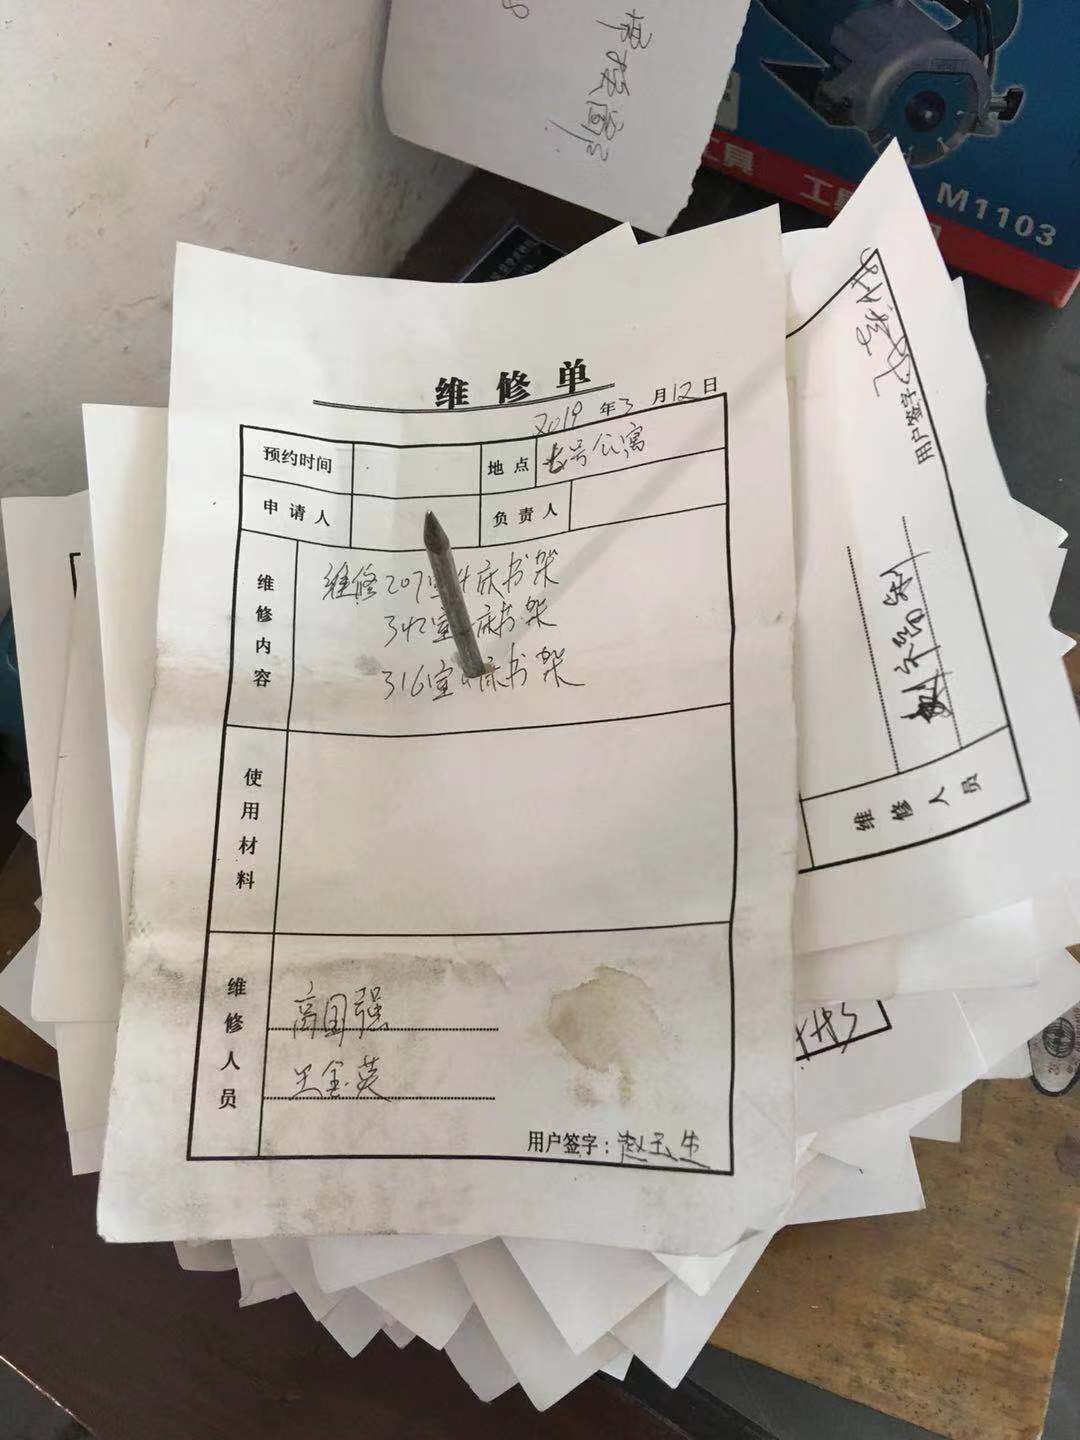 维修单
2019 年 3 月 12 日
预约时间 地点 七号公寓
申请人 负责人
维修内容
维修207室4床书架
342室 床书架
316室 床书架
使用材料
维修人员
高国强
王金英
用户签字：赵玉生
用户签字
维修人员
工具
M1103